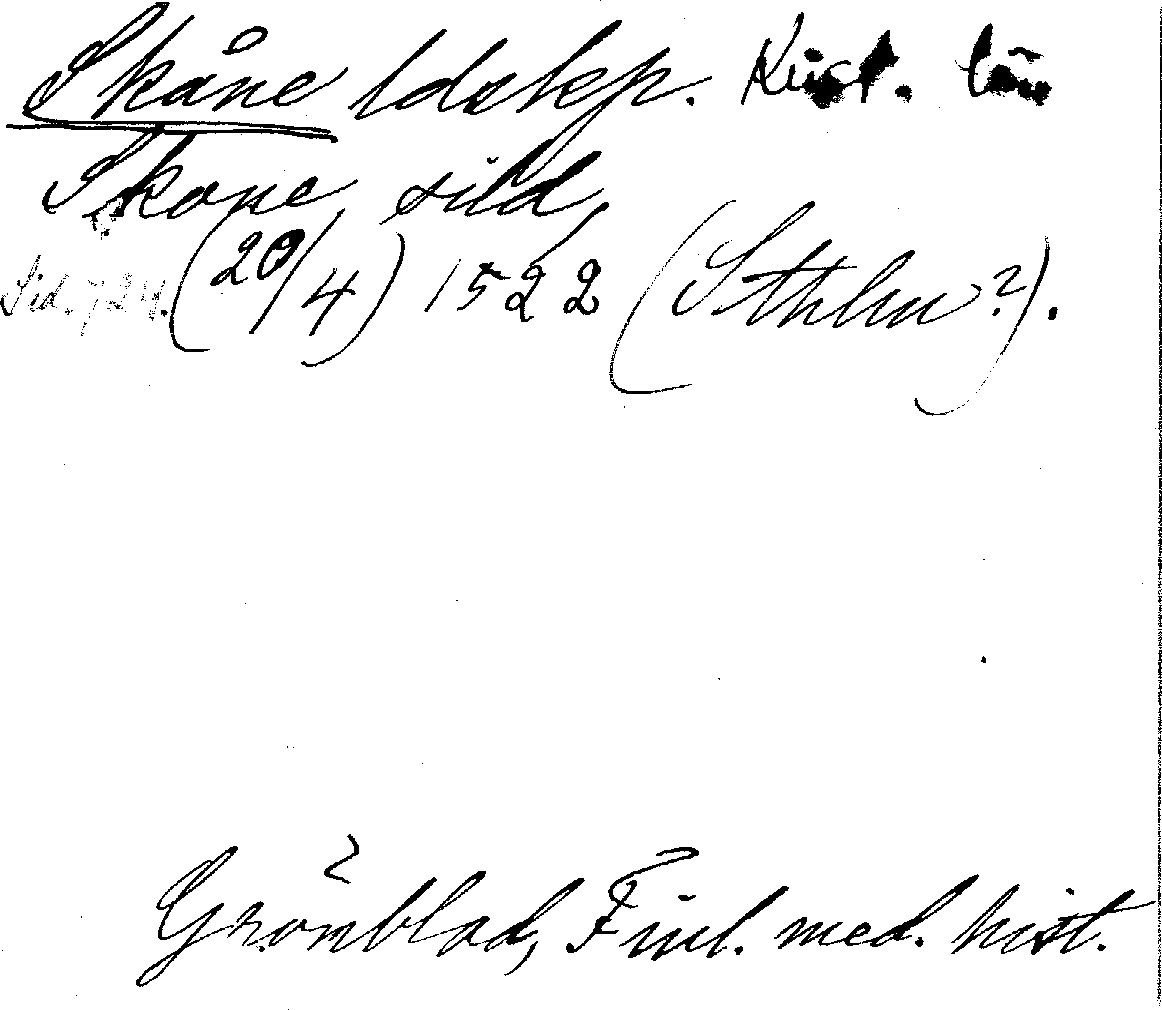 Skåne ldskp. Krist. län
Skone sild,
Sid. 724. (20/4) 1522 (Sthlm?).
Grönblad, Finl. med. hist.